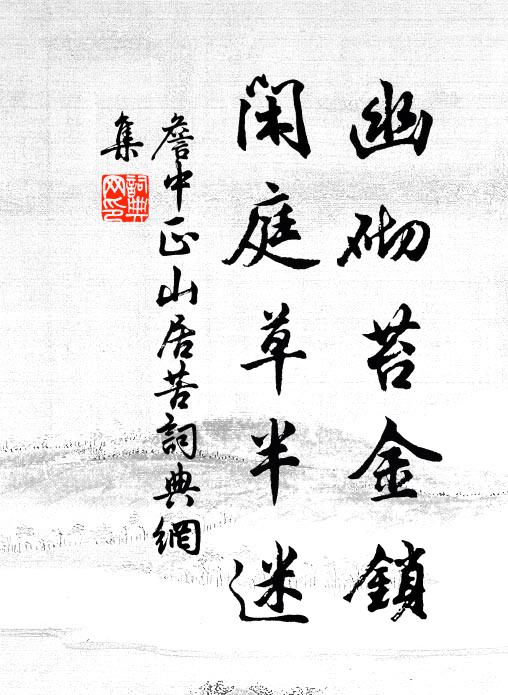 幽砌苔金鎖
閑庭草半迷
詹中正山居苦詞典網
集
詞典
网印